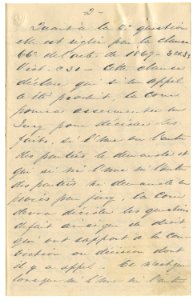 2 -
Quant à la 6e question
elle est réglée par la clause
66e de l'acte de 1869 -
Vict. c 31 - Cette clause
déclare que si un appel
a été produit la Cour
pourra assermenter un
Jury pour décider les
faits, si l'une ou l'autre
des parties le demande et
que si ni l'une ni l'autre
des parties ne demande un
procès par jury, la Cour
devra décider les questions
de fait ainsi que de droit
qui ont rapport à la con
viction ou décision dont
il y a appel. Ce n'est que
lorsque ni l'une ni l'autre